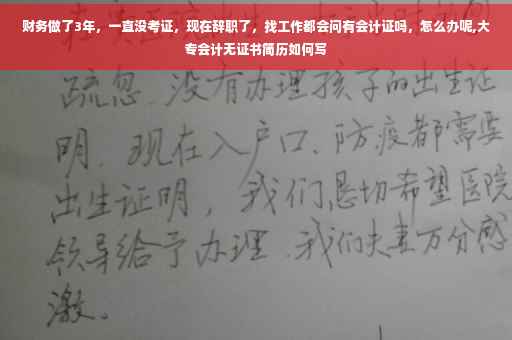 财务做了3年，一直没考证，现在辞职了，找工作都会问有会计证吗，怎么办呢,大
专会计无证书简历如何写
疏忽.没有办理孩子的出生证
明.现在入户口、防疫都需要
出生证明，我们恳切希望医院
领导给予办理.我们夫妻万分感
激。